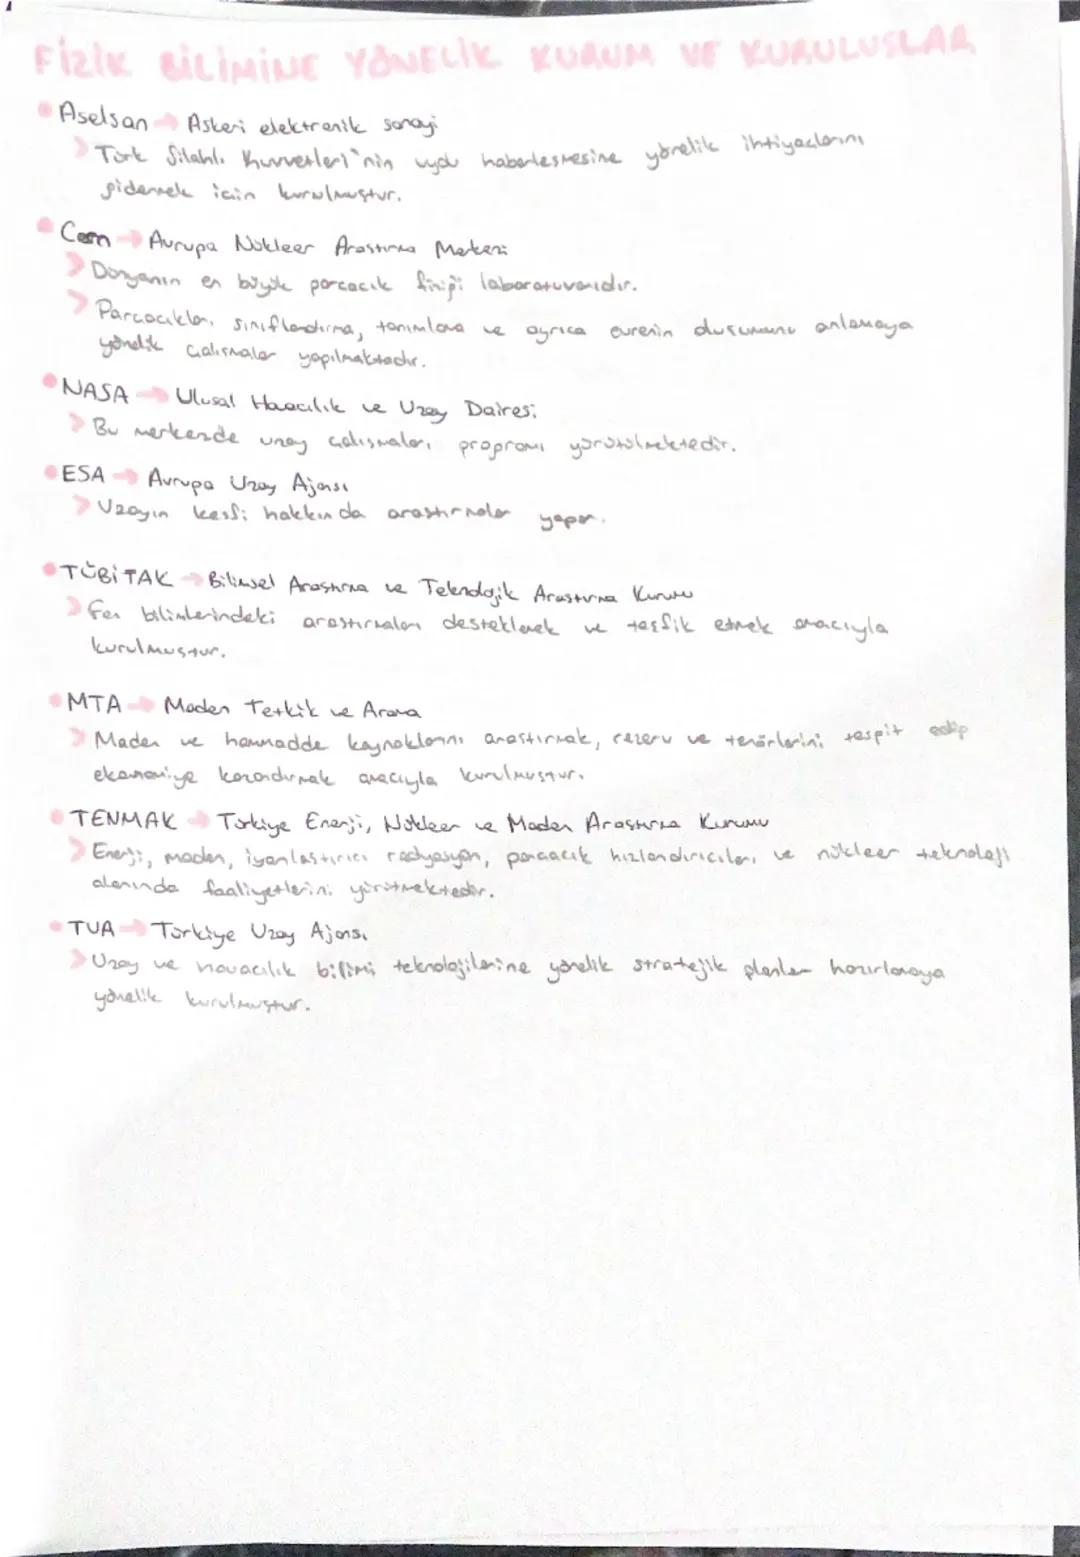 FİZİK BİLİMİNE YÖNELİK KURUM VE KURULUSLAR
Aselsan → Askeri elektronik sanayi
Türk Silahlı Kuvvetleri'nin uydu haberlesmesine yönelik ihtiyaclarını
gidermek icin kurulmuştur.
Cern → Avrupa Nükleer Arastırma Merkezi
Dünyanın en büyük parcacık fiziği laboratuvarıdır.
Parcacıkları sınıflandırma, tanımlama ve ayrıca evrenin oluşumunu anlamaya
yönelik calısmalar yapılmaktadır.
NASA → Ulusal Havacılık ve Uzay Dairesi
Bu merkezde uzay calısmaları programı yürütülmektedir.
ESA → Avrupa Uzay Ajansı
Uzayın kesfi hakkında arastırmalar yapar.
TÜBİTAK → Bilimsel Arastırma ve Teknolojik Arastırma Kurumu
Fen bilimlerindeki arastırmaları desteklemek ve teşfik etmek amacıyla
kurulmustur.
MTA → Maden Tetkik ve Arama
Maden ve hammadde kaynaklarını arastırmak, rezerv ve tenörlerini tespit edip
ekonomiye kazandırmak amacıyla kurulmustur.
TENMAK → Türkiye Enerji, Nükleer ve Maden Arastırma Kurumu
Enerji, maden, iyonlastırıcı radyasyon, parcacık hızlandırıcıları ve nükleer teknoloji
alanında faaliyetlerini yürütmektedir.
TUA → Türkiye Uzay Ajansı
Uzay ve havacılık bilimi teknolojilerine yönelik stratejik planlar hazırlamaya
yönelik kurulmuştur.